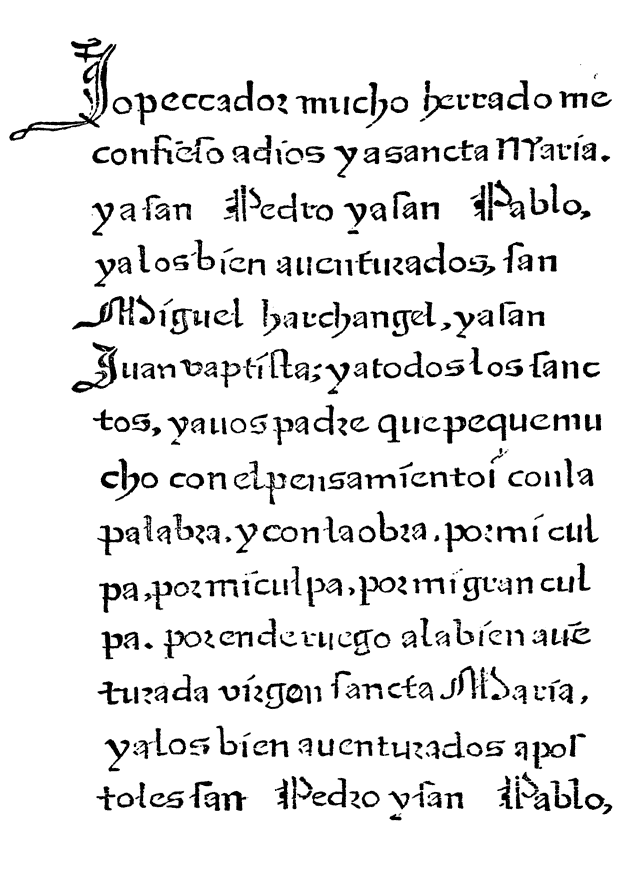 Jo peccador mucho herrado me
confiēso a dios y a sancta Maria.
y a san Pedro y a san Pablo,
y a los bien auenturados, san
Miguel harchangel, y a san
Juan baptista; y a todos los sanc
tos, y a uos padre que peque mu
cho con el pensamiento i con la
palabra. y con la obra. por mi cul
pa, por mi culpa, por mi gran cul
pa. por ende ruego a la bien auē
turada virgen sancta Maria,
y a los bien auenturados apos
toles san Pedro y san Pablo,